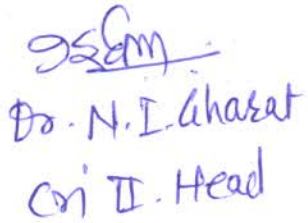 Dr. N. I. Gharat
Cri II. Head